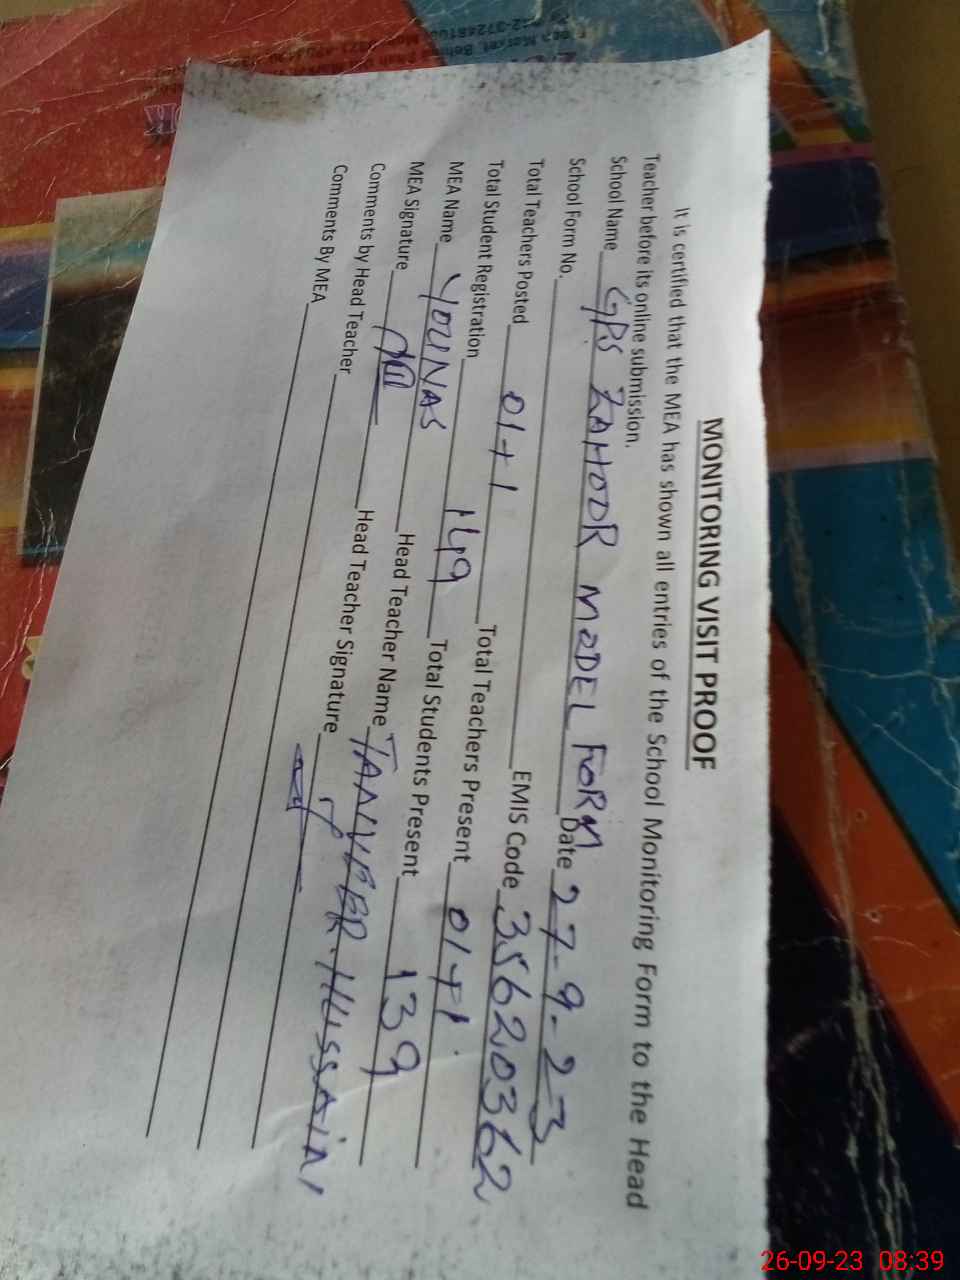 MONITORING VISIT PROOF
It is certified that the MEA has shown all entries of the School Monitoring Form to the Head
Teacher before its online submission.
School Name GPS ZAHOOR MODEL FORM Date 27-9-23
School Form No. EMIS Code 35620362
Total Teachers Posted 01+1 Total Teachers Present 01+1
Total Student Registration 149 Total Students Present 139
MEA Name YOUNAS Head Teacher Name TANVEER HUSSAIN
MEA Signature Head Teacher Signature
Comments by Head Teacher
Comments By MEA
26-09-23 08:39